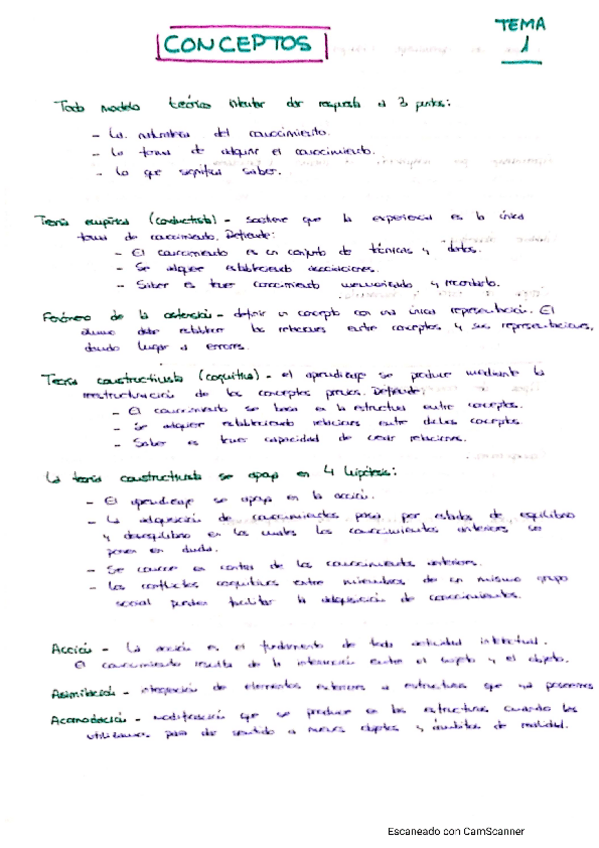 TEMA
1
CONCEPTOS
Todo modelo teórico intentar dar respuesta a 3 puntos:
- La naturaleza del conocimiento.
- La forma de adquirir el conocimiento.
- Lo que significa saber.
Teoría empírica (conductista) - Sostiene que la experiencia es la única
forma de conocimiento. Defiende:
- El conocimiento es un conjunto de técnicas y datos.
- Se adquiere estableciendo asociaciones.
- Saber es tener conocimiento memorizado y recordarlo.
Fenómeno de la ostensión - definir un concepto con una única representación. El
alumno debe establecer las relaciones entre conceptos y sus representaciones,
dando lugar a errores.
Teoría constructivista (cognitiva) - el aprendizaje se produce mediante la
reestructuración de los conceptos previos. Defiende:
- El conocimiento se basa en la estructura entre conceptos.
- Se adquiere estableciendo relaciones entre dichos conceptos.
- Saber es tener capacidad de crear relaciones.
La teoría constructivista se apoya en 4 hipótesis:
- El aprendizaje se apoya en la acción.
- La adquisición de conocimientos pasa por estados de equilibrio
y desequilibrio en los cuales los conocimientos anteriores se
ponen en duda.
- Se conoce en contra de los conocimientos anteriores.
- Los conflictos cognitivos entre miembros de un mismo grupo
social pueden facilitar la adquisición de conocimientos.
Acción - La acción es el fundamento de toda actividad intelectual.
El conocimiento resulta de la interacción entre el sujeto y el objeto.
Asimilación - integración de elementos exteriores a estructuras que ya poseemos
Acomodación - modificación que se produce en las estructuras cuando las
utilizamos para dar sentido a nuevos objetos y ámbitos de realidad.
Escaneado con CamScanner